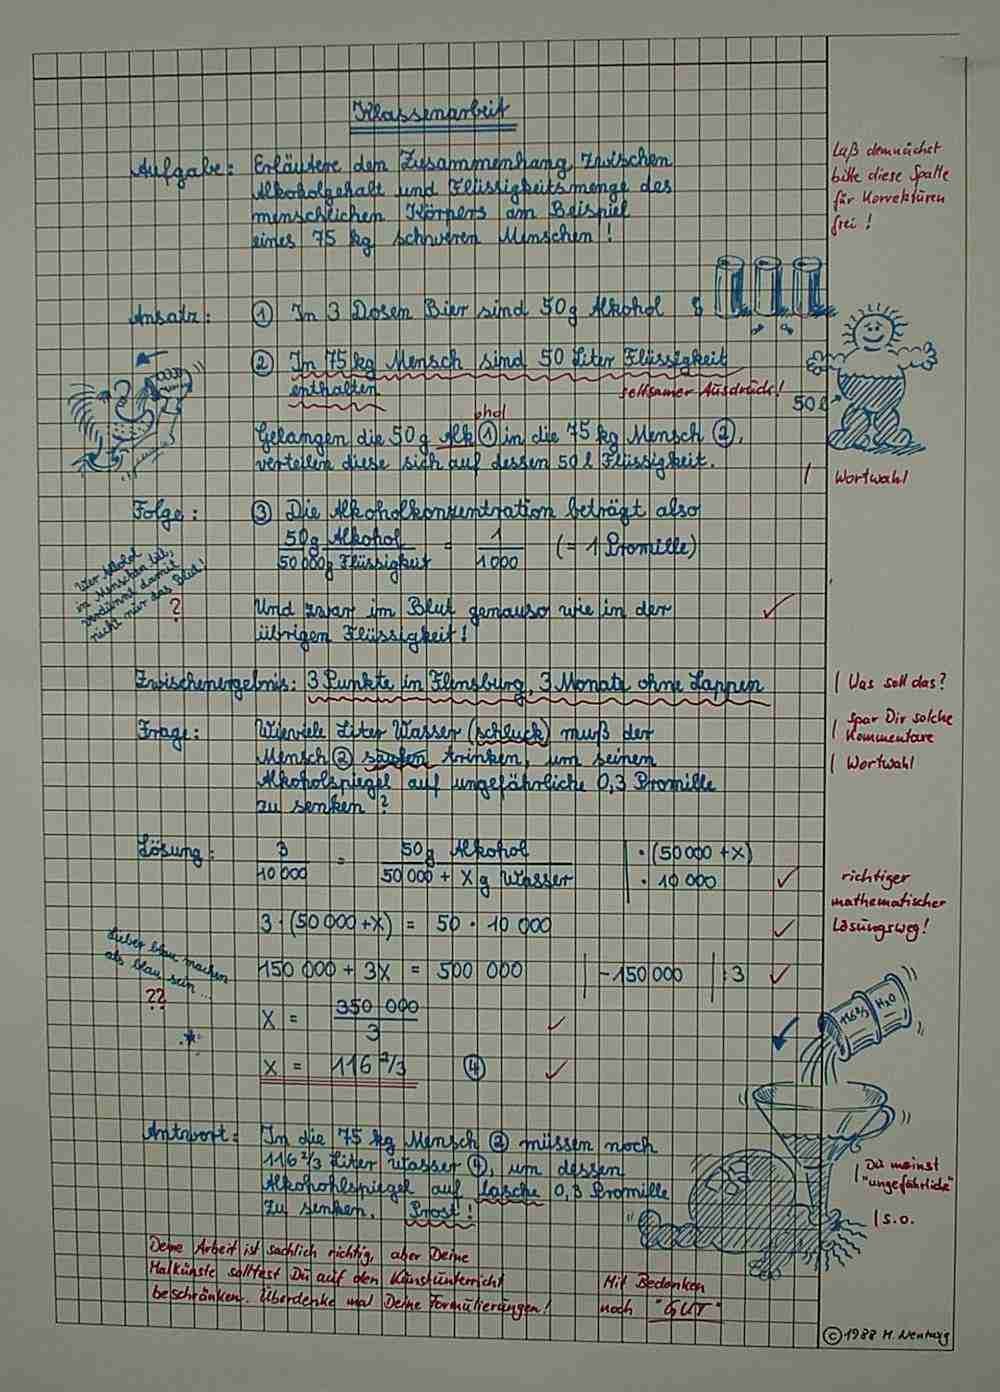 Klassenarbeit
Aufgabe: Erläutere den Zusammenhang zwischen
Alkoholgehalt und Flüssigkeitsmenge des
menschlichen Körpers am Beispiel
eines 75 kg schweren Menschen!
Laß demnächst
bitte diese Spalte
für Korrekturen
frei!
Ansatz: ① In 3 Dosen Bier sind 50g Alkohol
② In 75 kg Mensch sind 50 Liter Flüssigkeit
enthalten
seltsamer Ausdruck!
50 l
ohol
Gelangen die 50g Alk ① in die 75 kg Mensch ②,
verteilen diese sich auf dessen 50 l Flüssigkeit.
| Wortwahl
Folge: ③ Die Alkoholkonzentration beträgt also
50g Alkohol / 50 000g Flüssigkeit = 1 / 1000 (= 1 Promille)
in Menschen
damit
nicht nur das Blut!
?
Und zwar im Blut genauso wie in der
übrigen Flüssigkeit!
Zwischenergebnis: 3 Punkte in Flensburg, 3 Monate ohne Lappen
| Was soll das?
Frage: Wieviele Liter Wasser (schluck) muß der
Mensch ② saufen trinken, um seinen
Alkoholspiegel auf ungefährliche 0,3 Promille
zu senken?
| Spar Dir solche
Kommentare
| Wortwahl
Lösung: 3 / 10 000 = 50g Alkohol / 50 000 + X g Wasser | · (50 000 + X)
| · 10 000
richtiger
mathematischer
Lösungsweg!
3 · (50 000 + X) = 50 · 10 000
150 000 + 3X = 500 000 | -150 000 | : 3
Lieber blau machen
als blau sein...
??
X = 350 000 / 3
X = 116 2/3 ④
116 2/3
H2O
Antwort: In die 75 kg Mensch ② müssen noch
116 2/3 Liter Wasser ④, um dessen
Alkohohlspiegel auf lasche 0,3 Promille
zu senken. Prost!
| Du meinst
"ungefährliche"
| s.o.
Deine Arbeit ist sachlich richtig, aber Deine
Malkünste solltest Du auf den Kunstunterricht
beschränken. Überdenke mal Deine Formulierungen!
Mit Bedenken
noch "GUT"
© 1988 M.